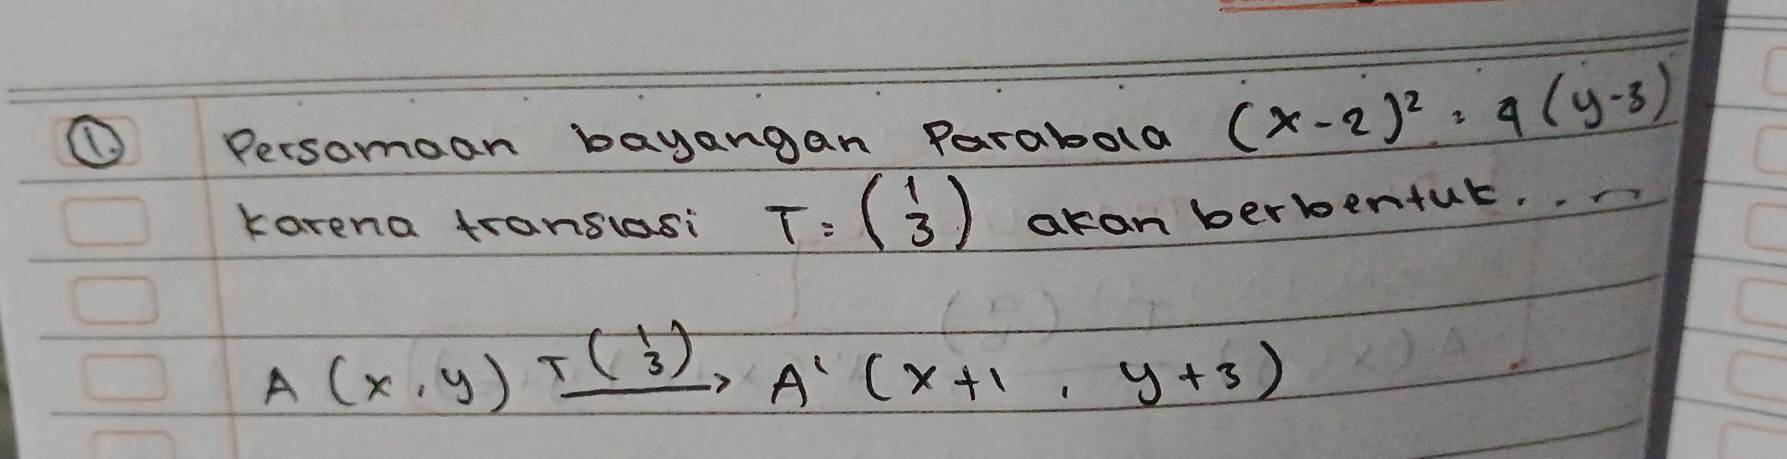 ① Persamaan bayangan Parabola (x-2)² = 4(y-3)
karena translasi T = (1 3) akan berbentuk...
A (x, y) T(1 3)→ A' (x+1, y+3)